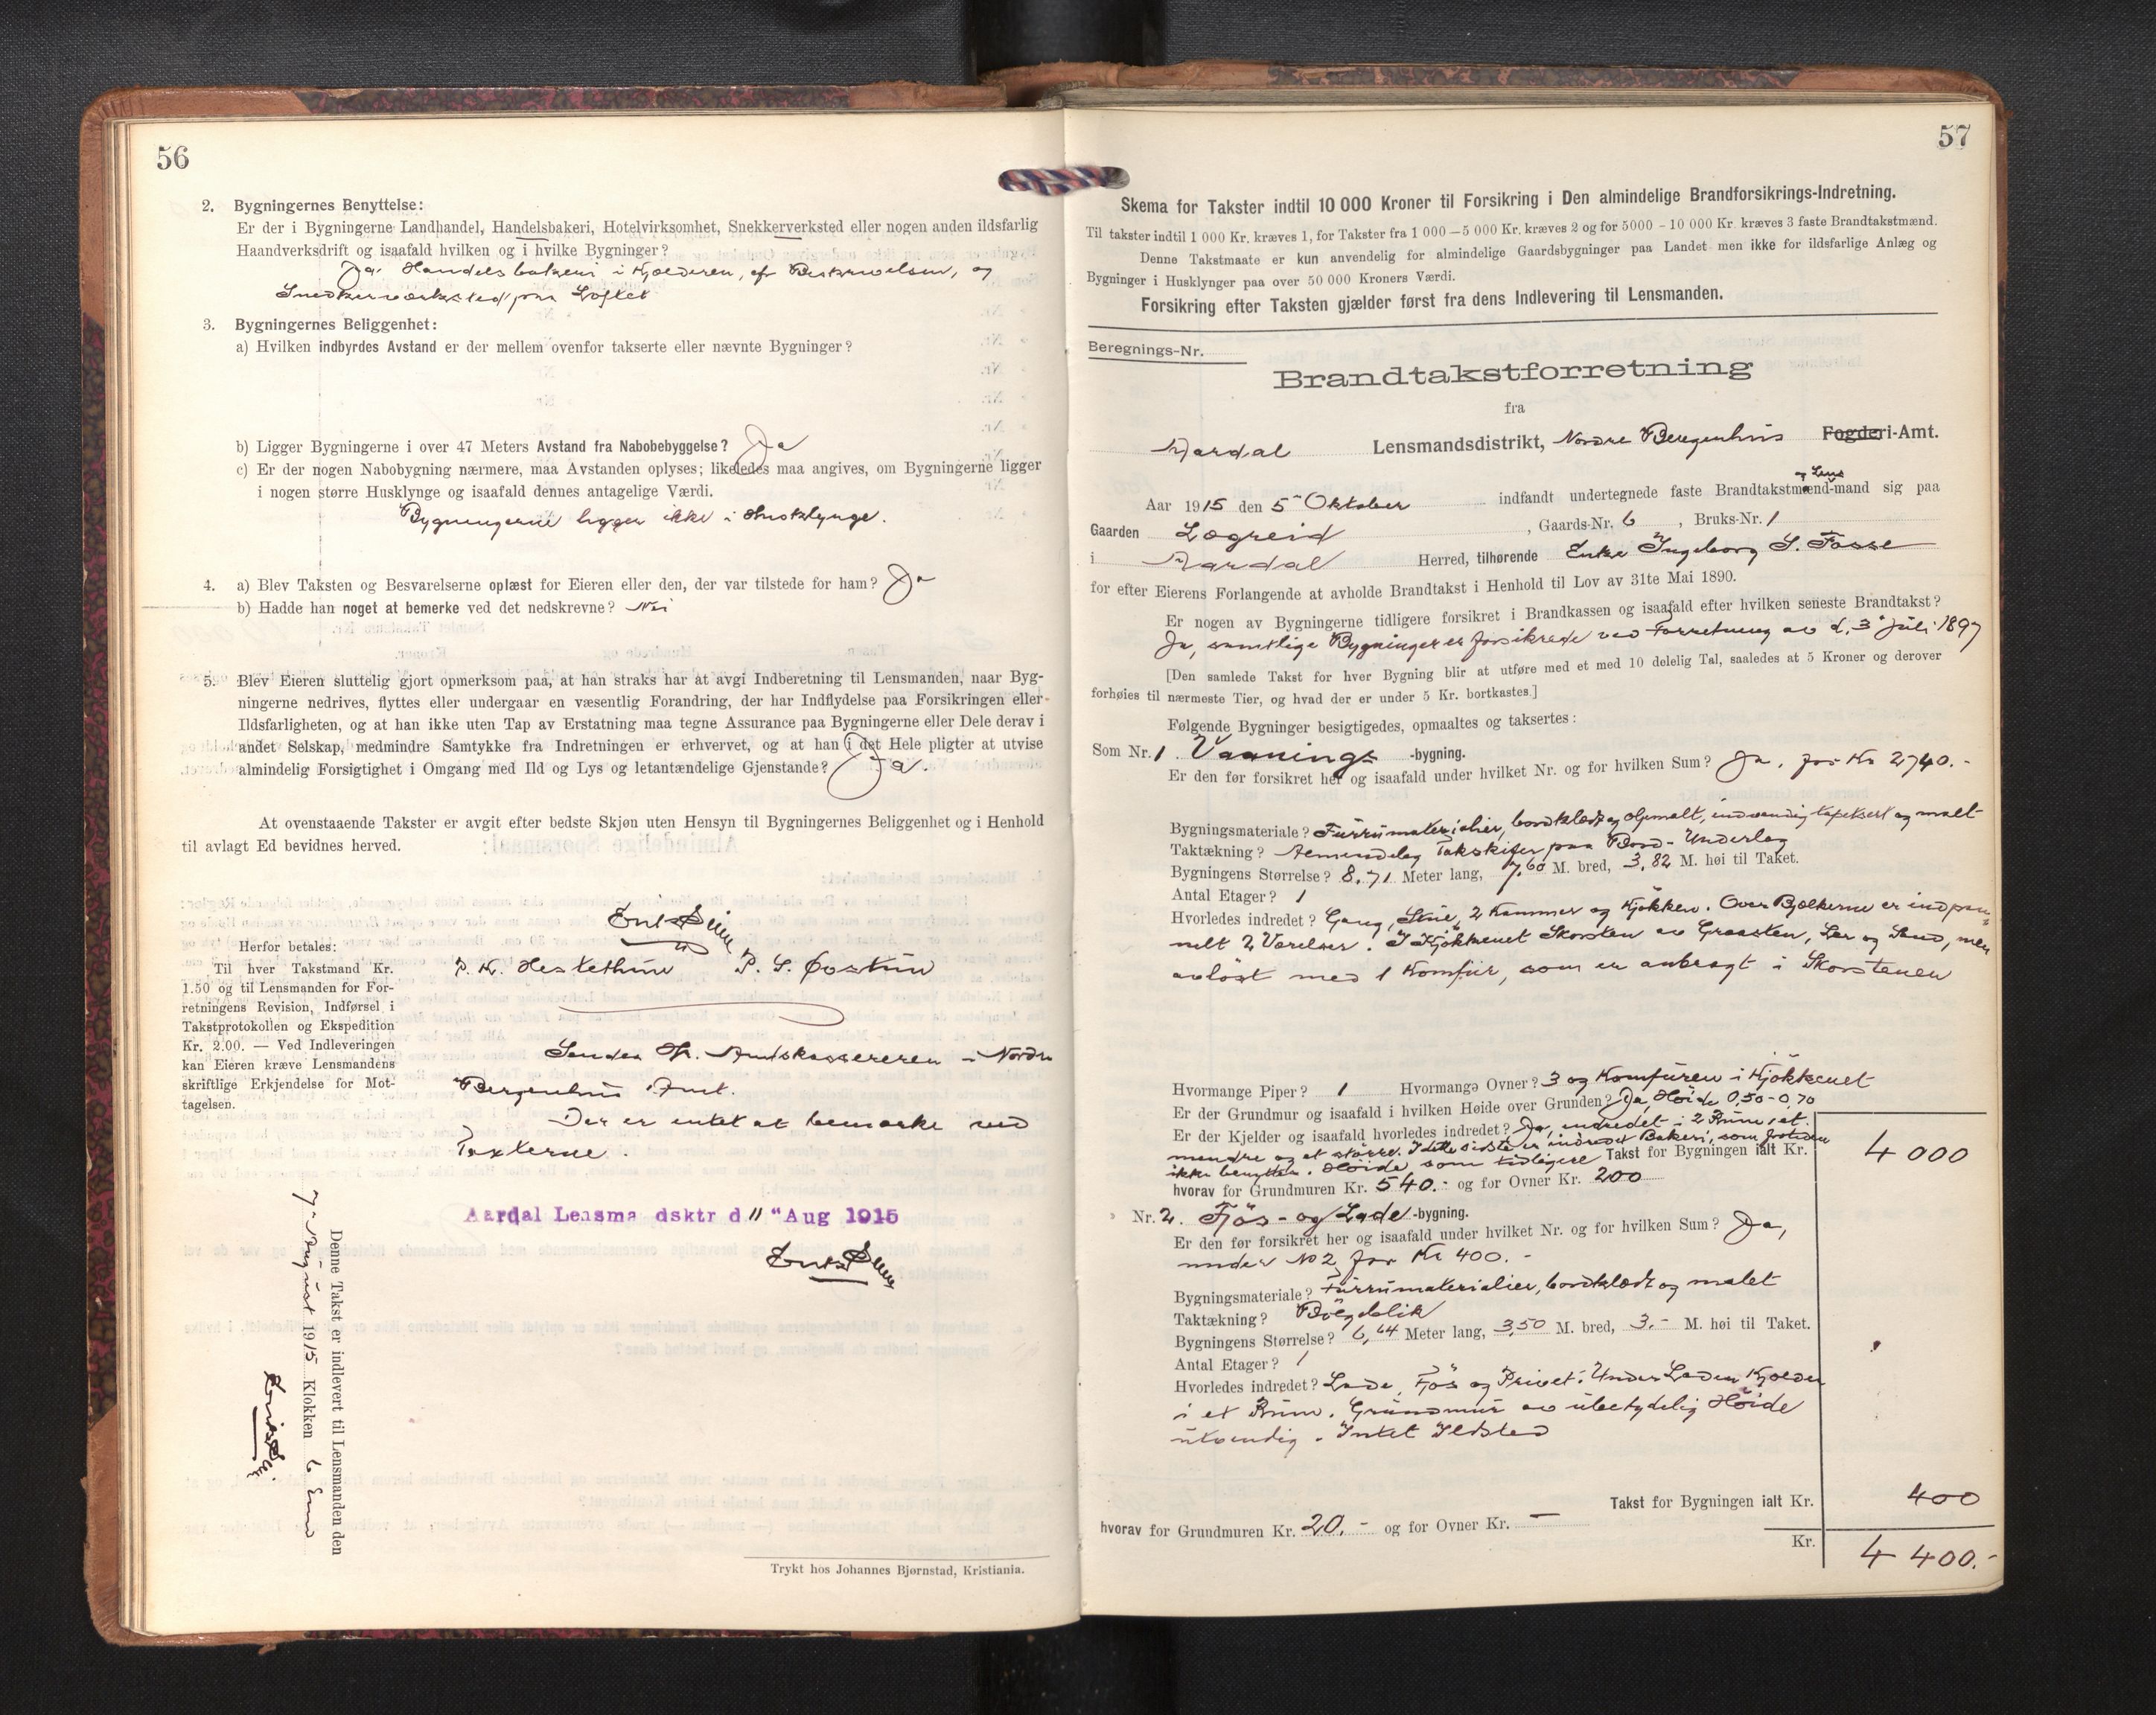 56
2. Bygningernes Benyttelse:
Er der i Bygningerne Landhandel, Handelsbakeri, Hotelvirksomhet, Snekkerverksted eller nogen anden ildsfarlig
Haandverksdrift og isaafald hvilken og i hvilke Bygninger?
Ja. Handelsbakeri i Kjælderen, cfr Beskrivelsen, og
Snedkerværksted paa Loftet
3. Bygningernes Beliggenhet:
a) Hvilken indbyrdes Avstand er der mellem ovenfor takserte eller nævnte Bygninger?
b) Ligger Bygningerne i over 47 Meters Avstand fra Nabobebyggelse? Ja
c) Er der nogen Nabobygning nærmere, maa Avstanden oplyses; likeledes maa angives, om Bygningerne ligger
i nogen større Husklynge og isaafald dennes antagelige Værdi.
Bygningerne ligger ikke i Husklynge.
4. a) Blev Taksten og Besvarelserne oplæst for Eieren eller den, der var tilstede for ham? Ja
b) Hadde han noget at bemerke ved det nedskrevne? Nei
5. Blev Eieren sluttelig gjort opmerksom paa, at han straks har at avgi Indberetning til Lensmanden, naar Byg-
ningerne nedrives, flyttes eller undergaar en væsentlig Forandring, der har Indflydelse paa Forsikringen eller
Ildsfarligheten, og at han ikke uten Tap av Erstatning maa tegne Assurance paa Bygningerne eller Dele derav i
andet Selskap, medmindre Samtykke fra Indretningen er erhvervet, og at han i det Hele pligter at utvise
almindelig Forsigtighet i Omgang med Ild og Lys og letantændelige Gjenstande? Ja.
At ovenstaaende Takster er avgit efter bedste Skjøn uten Hensyn til Bygningernes Beliggenhet og i Henhold
til avlagt Ed bevidnes herved.
Herfor betales:
Til hver Takstmand Kr.
1.50 og til Lensmanden for For-
retningens Revision, Indførsel i
Takstprotokollen og Ekspedition
Kr. 2.00. — Ved Indleveringen
kan Eieren kræve Lensmandens
skriftlige Erkjendelse for Mot-
tagelsen.
P. K. Hestethun P. S. Østun
Sendes Hr. Amtskassereren i Nordre
Bergenhus Amt.
Der er intet at bemærke ved
Taxterne.
Aardal Lensma dsktr d 11 " Aug 1915
Denne Takst er indlevert til Lensmanden den
7 - August 1915 Klokken 6 Em
Trykt hos Johannes Bjørnstad, Kristiania.
57
Skema for Takster indtil 10 000 Kroner til Forsikring i Den almindelige Brandforsikrings-Indretning.
Til takster indtil 1 000 Kr. kræves 1, for Takster fra 1 000 — 5 000 Kr. kræves 2 og for 5000 - 10 000 Kr. kræves 3 faste Brandtakstmænd.
Denne Takstmaate er kun anvendelig for almindelige Gaardsbygninger paa Landet men ikke for ildsfarlige Anlæg og
Bygninger i Husklynger paa over 50 000 Kroners Værdi.
Forsikring efter Taksten gjælder først fra dens Indlevering til Lensmanden.
Beregnings-Nr.
Brandtakstforretning
fra
Aardal Lensmandsdistrikt, Nordre Bergenhus Fogderi-Amt.
Aar 1915 den 5 Oktober indfandt undertegnede faste Brandtakstmænd og Lens-mand sig paa
Gaarden Lægreid, Gaards-Nr. 6, Bruks-Nr. 1
i Aardal Herred, tilhørende Enke Ingeborg S. Fosse
for efter Eierens Forlangende at avholde Brandtakst i Henhold til Lov av 31te Mai 1890.
Er nogen av Bygningerne tidligere forsikret i Brandkassen og isaafald efter hvilken seneste Brandtakst?
Ja, samtlige Bygninger er forsikrede ved Forretning av d. 3 Juli 1897
[Den samlede Takst for hver Bygning blir at utføre med et med 10 delelig Tal, saaledes at 5 Kroner og derover
forhøies til nærmeste Tier, og hvad der er under 5 Kr. bortkastes.]
Følgende Bygninger besigtigedes, opmaaltes og taksertes:
Som Nr. 1 Vaanings-bygning.
Er den før forsikret her og isaafald under hvilket Nr. og for hvilken Sum? Ja, for Kr 2740.-
Bygningsmateriale? Furrumaterialier, bordklædt og oljemalt, indvendig tapetsert og malt
Taktækning? Almindelig Takskifer paa Bord-Underlag
Bygningens Størrelse? 8,71 Meter lang, 7,60 M. bred, 3,82 M. høi til Taket.
Antal Etager? 1
Hvorledes indredet? Gang, Stue, 2 Kammer og Kjøkken. Over Bjelkerne er indpan-
nelt 2 Værelser. I Kjøkkenet Skorsten av Graasten, Ler og Sand, men
avløst med 1 Komfur, som er anbragt i Skorstenen
Hvormange Piper? 1 Hvormange Ovner? 3 og Komfuren i Kjøkkenet
Er der Grundmur og isaafald i hvilken Høide over Grunden? Ja, Høide 0,50-0,70
Er der Kjelder og isaafald hvorledes indredet? Ja, indredet i 2 Rum, et
mendre og et større. I dette sidste er indredet Bakeri, som fortiden
ikke benyttes. Høide som tidligere Takst for Bygningen ialt Kr. 4 000
hvorav for Grundmuren Kr. 540.- og for Ovner Kr. 200
Nr. 2. Fjøs- og Lade-bygning.
Er den før forsikret her og isaafald under hvilket Nr. og for hvilken Sum? Ja,
under No 2 for Kr 400.-
Bygningsmateriale? Furrumaterialier, bordklædt og malet
Taktækning? Bølgeblik
Bygningens Størrelse? 6,44 Meter lang, 3,50 M. bred, 3.- M. høi til Taket.
Antal Etager? 1
Hvorledes indredet? Lade, Fjøs og Privet. Under Laden Kjelder
i et Rum. Grundmur av ubetydelig Høide
utvendig. Intet Ildsted
Takst for Bygningen ialt Kr. 400
hvorav for Grundmuren Kr. 20.- og for Ovner Kr. —
Kr. 4 400.-